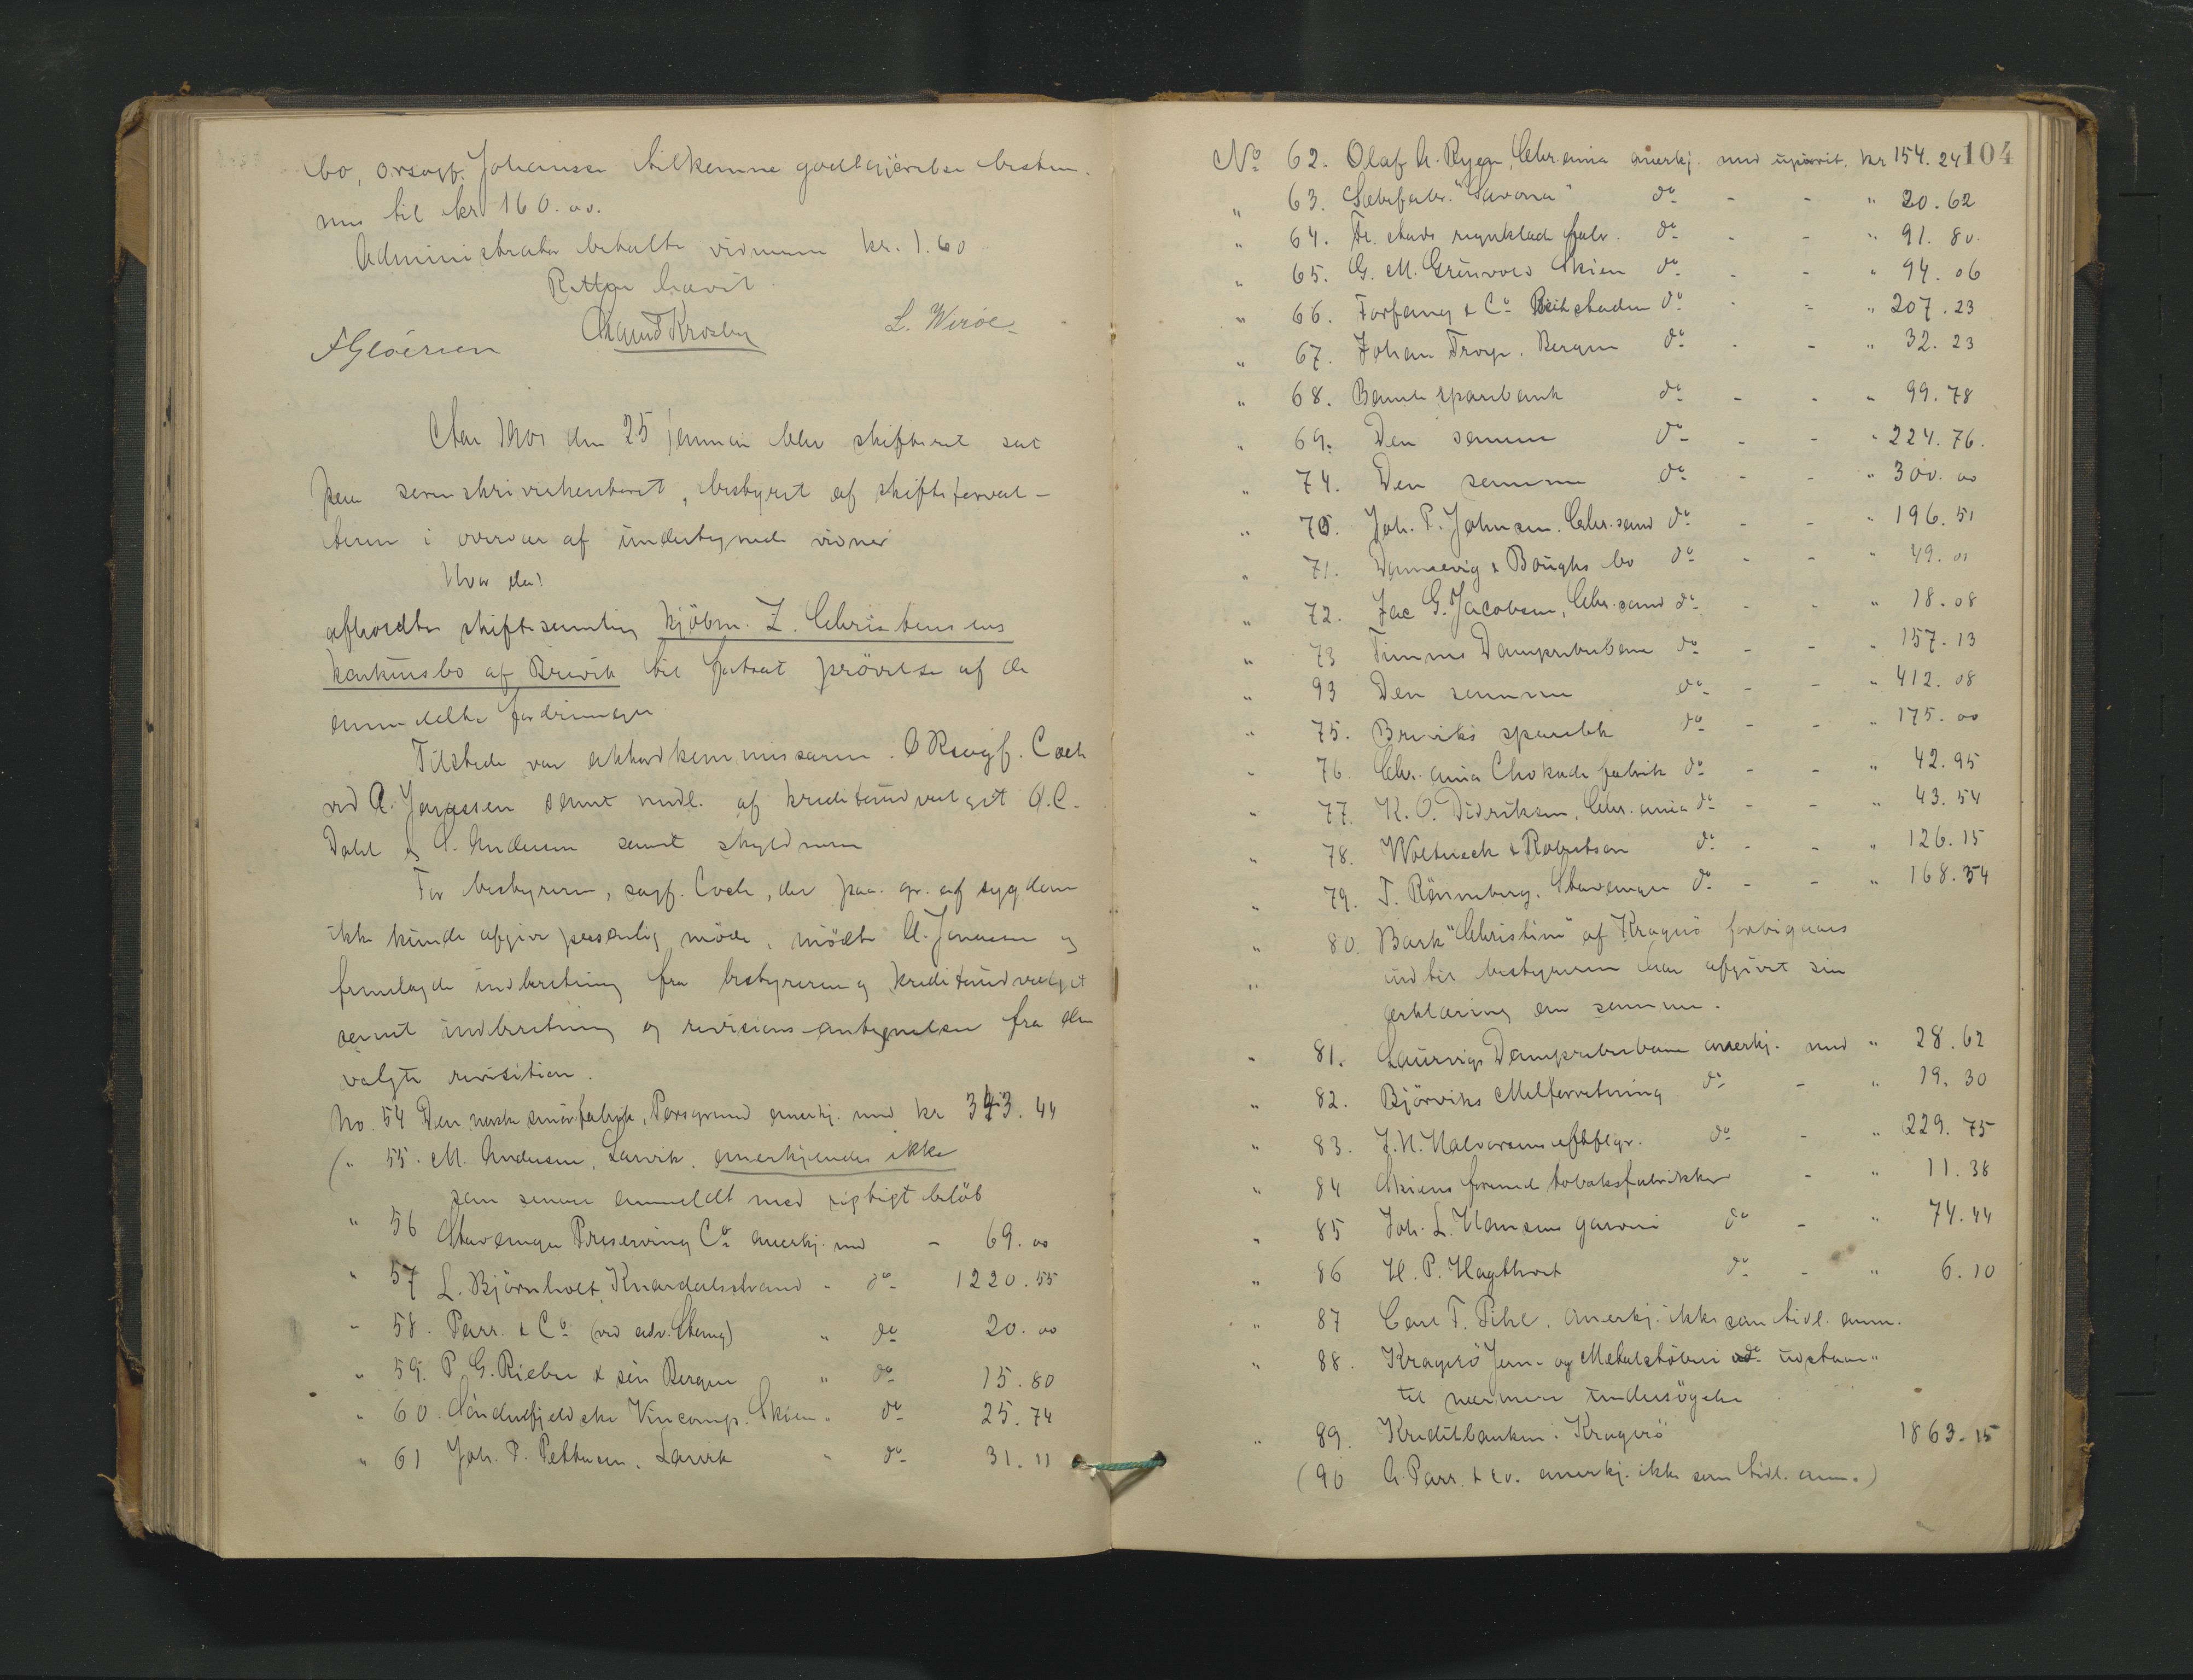 bo, orsagf. Johansen tilkomne godtgjørelse bestem-
mes til kr 160.00.
Administrator betalte vidnerne kr. 1.60
Retten hævet
AGlöersen Amund Krosby L. Wiröe
Aar 1901 den 25 januar blev skifteret sat
paa sorenskriverkontoret, bestyret af skifteforval-
teren i overvær af undertegnede vidner
Hvor da:
afholdtes skiftesamling kjöbm. Z. Christensens
konkursbo af Brevik til fortsat prövelse af de
anmeldte fordringer
Tilstede var akkordkommissæren ORsagf. Coch
ved A. Jonassen samt medl. af kreditoudvalget O.C.
Dahl og A. Andersen samt skyldneren
For bestyreren, sagf. Coch, der paa gr. af sygdom
ikke kunde afgive personlig möde, mödte A. Jonassen og
fremlagde indberetning fra bestyreren og kreditoudvalget
samt indberetning og revisions-antegnelser fra den
valgte revisition.
No. 54 Den norske smörfabrik, Porsgrund anerkj. med kr 343.44
(" 55. M. Andersen, Larvik, anerkjendes ikke
som senere anmeldt med rigtigt belöb
" 56 Stavanger Preserving Co anerkj. med - 69.00
" 57 L. Björnholt, Knardalsstrand - do 1220.55
" 58. Parr & Co (ved adv. Stang) " do 20.00
" 59. P. G. Rieber & sön Bergen " do 15.80
" 60. Söndenfjeldske Vincomp. Skien " do 25.74
" 61 Joh. P. Pettersen, Larvik " do 31.11
104
No 62. Olaf A. Ryen, Chr.ania anerkj. med uprivit. kr 154.24
" 63. Sæbefabr. "Savona" do - - " 20.62
" 64. Fr.stads regnklæde fabr. do - - " 91.80.
" 65. G. M. Grünvold Skien do - - " 94.06
" 66. Forfang & Co Beitstaden do - - " 207.23
" 67. Johan Troye. Bergen do - - " 32.23
" 68. Bamle sparebank do - - " 99.78
" 69. Den samme do - - " 224.76.
" 74. Den samme do - - " 300.00
" 70. Joh. P. Johnsen. Chr.sand do - - " 196.51
" 71. Dannevig & Boughs bo do - - " 49.01
" 72. Jac G. Jacobsen, Chr.sand do - - " 18.08
" 73 Timms Dampreberbane do - - " 157.13
" 93 Den samme do - - " 412.08
" 75. Breviks sparebk do - - " 175.00
" 76. Chr.ania Chokoladefabrik do - - " 42.95
" 77. K. O. Didriksen, Chr.ania do - - " 43.54
" 78. Woltweck & Robertson do - - " 126.15
" 79. T. Rönneberg. Stavanger do - - " 168.54
" 80. Bark "Christine" af Kragerö forbigaaes
" indtil bestyreren har afgivet sin
erklæring om samme.
" 81. Laurvigs Dampreberbane anerkj. med " 28.62
" 82. Björviks Melforretning do - " 19.30
" 83. J. N. Halvorsens eftflgr. do - " 229.75
" 84 Skiens forenede tobaksfabrikker - " 11.38
" 85 Joh. L. Hansens garveri do - " 74.44
" 86 H. P. Hagtvet do - " 6.10
" 87 Carl F. Pihl. anerkj. ikke som tidl. anm.
" 88. Kragerö Jern- og Metalstöberi udstaar
til nærmere undersögelse
" 89. Kreditbanken i Kragerö 1863.15
(90 A. Parr & co. anerkj. ikke som tidl. anm.)